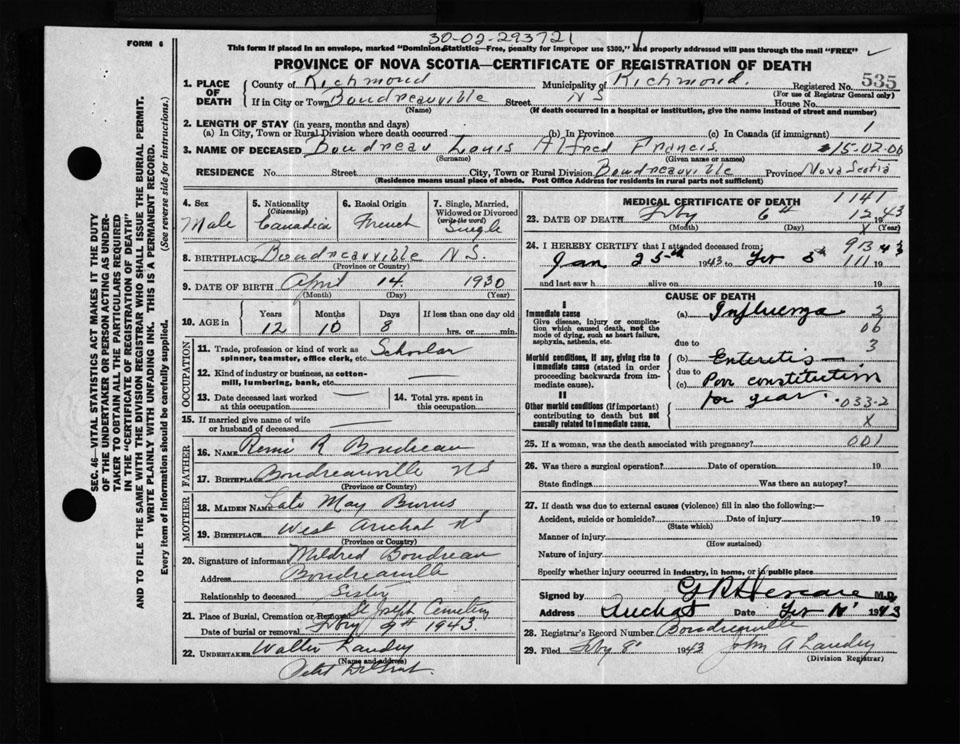 30-02-293721
FORM 6
This form if placed in an envelope, marked "Dominion Statistics—Free, penalty for improper use $300," and properly addressed will pass through the mail "FREE"
PROVINCE OF NOVA SCOTIA—CERTIFICATE OF REGISTRATION OF DEATH
SEC. 46—VITAL STATISTICS ACT MAKES IT THE DUTY
OF THE UNDERTAKER OR PERSON ACTING AS UNDER-
TAKER TO OBTAIN ALL THE PARTICULARS REQUIRED
IN THE "CERTIFICATE OF REGISTRATION OF DEATH"
AND TO FILE THE SAME WITH THE DIVISION REGISTRAR WHO SHALL ISSUE THE BURIAL PERMIT.
WRITE PLAINLY WITH UNFADING INK. THIS IS A PERMANENT RECORD.
Every item of information should be carefully supplied. (See reverse side for instructions.)
1. PLACE OF DEATH
County of Richmond Municipality of Richmond. Registered No. 535
(For use of Registrar General only)
If in City or Town Boudreauville Street N S House No.
(Name) (If death occurred in a hospital or institution, give the name instead of street and number)
2. LENGTH OF STAY (in years, months and days)
(a) In City, Town or Rural Division where death occurred (b) In Province (c) In Canada (if immigrant) 1
3. NAME OF DECEASED Boudreau Louis Alfred Francis. 15-02-00
(Surname) (Given name or names)
RESIDENCE No. Street City, Town or Rural Division Boudreauville Province Nova Scotia
(Residence means usual place of abode. Post Office Address for residents in rural parts not sufficient)
4. Sex 5. Nationality (Citizenship) 6. Racial Origin 7. Single, Married, Widowed or Divorced (write the word)
Male Canadian French Single
8. BIRTHPLACE Boudreauville N S.
(Province or Country)
9. DATE OF BIRTH April 14. 1930
(Month) (Day) (Year)
10. AGE in Years Months Days If less than one day old
12 10 8 hrs. or min.
OCCUPATION
11. Trade, profession or kind of work as spinner, teamster, office clerk, etc. Scholar
12. Kind of industry or business, as cotton-mill, lumbering, bank, etc. —
13. Date deceased last worked at this occupation —
14. Total yrs. spent in this occupation —
15. If married give name of wife or husband of deceased —
FATHER
16. NAME Remi R Boudreau
17. BIRTHPLACE Boudreauville N S
(Province or Country)
MOTHER
18. MAIDEN NAME Late May Burns
19. BIRTHPLACE West Arichat N S
(Province or Country)
20. Signature of informant Mildred Boudreau
Address Boudreauville
Relationship to deceased Sister
21. Place of Burial, Cremation or Removal St Joseph Cemetery
Date of burial or removal Feby 9th 1943.
22. UNDERTAKER Walter Landry
(Name and address)
Petit De Grat
MEDICAL CERTIFICATE OF DEATH 1141
23. DATE OF DEATH Feby 6th 12 1943
(Month) (Day) X (Year)
24. I HEREBY CERTIFY that I attended deceased from:
Jan 25th 1943 to Feb 5th 1943
and last saw h alive on 19
CAUSE OF DEATH
I
Immediate cause
Give disease, injury or complication which caused death, not the mode of dying, such as heart failure, asphyxia, asthenia, etc.
(a) Influenza
due to
Morbid conditions, if any, giving rise to immediate cause (stated in order proceeding backwards from immediate cause).
(b) Enteritis —
due to
(c) Poor constitution
for years.
033-2
II
Other morbid conditions (if important) contributing to death but not causally related to immediate cause.
X
25. If a woman, was the death associated with pregnancy? 001
26. Was there a surgical operation? Date of operation 19
State findings Was there an autopsy?
27. If death was due to external causes (violence) fill in also the following:—
Accident, suicide or homicide? Date of injury 19
(State which)
Manner of injury
(How sustained)
Nature of injury
Specify whether injury occurred in industry, in home, or in public place
Signed by M.D.
Address Arichat Date Feb 1943
28. Registrar's Record Number Boudreauville
29. Filed Feby 8" 1943 John A Landry
(Division Registrar)